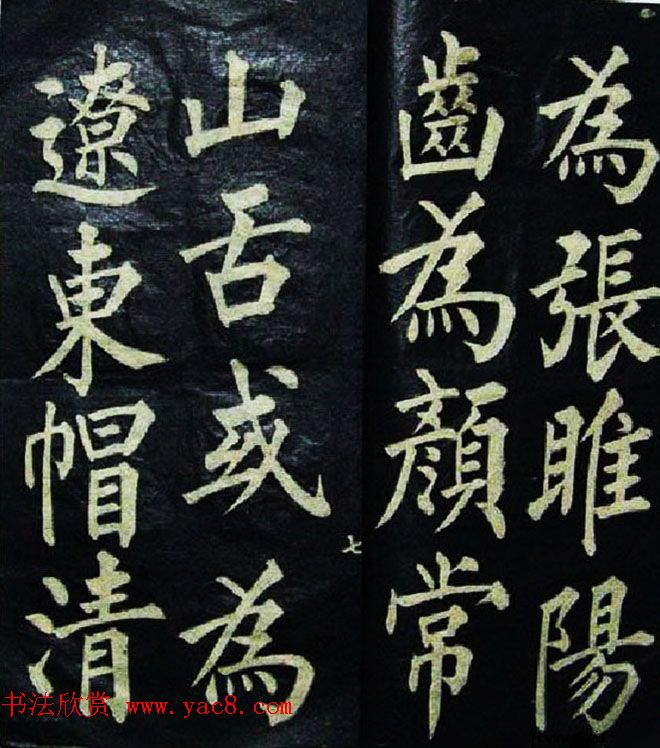 為張睢陽
齒為顏常
山舌或為
遼東帽清
七
书法欣赏 www.yac8.com